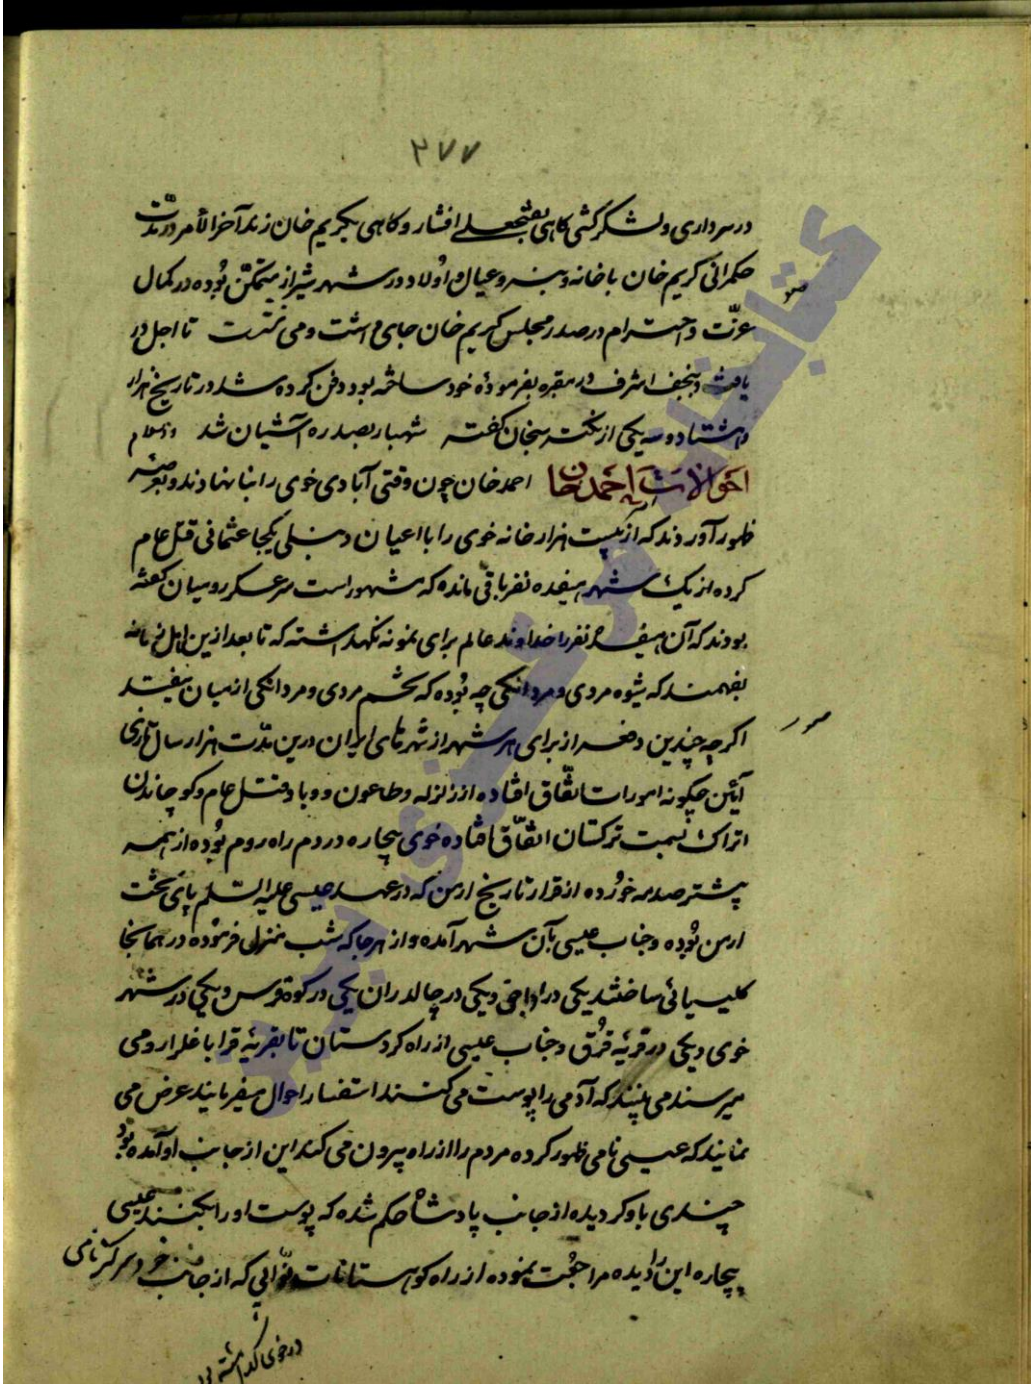 ۲۷۷
در سرداری و لشکر کشی گاهی بفتحعلی افشار و گاهی بکریم خان زند آخر الامر در مدّت
حکمرانی کریم خان با خانه و بنه و عیال و اولاد در شهر شیراز متمکّن بُوده در کمال
عزّت و احترام در صدر مجلس کریم خان جای داشت و می تا اجل در
یافت و بنجف اشرف در مقبره بفرمودهٔ خود ساخته بود دفن کرده شد در تاریخ هزار
و هشتاد و سه یکی از نکته سنجان گفته شهباز بصدره آشیان شد والسلام
احوالات احمد خان احمد خان چون وقتی آبادی خوی را بنا نهادند و بعرصه
ظهور آوردند که از بیست هزار خانه خوی را با اعیان دنبلی یکجا عثمانی قتل عام
کرده از یک شهر هیفده نفر باقی مانده که مشهور است سر عسکر روسیان گفته
بودند که آن هیفده نفر را خداوند عالم برای نمونه نگهداشته که تا بعد ازین اهل زمانه
بفهمند که شیوه مردی و مردانگی چه بُوده که تخم مردی و مردانگی از میان نیفتد
اکرچه چندین دفعه از برای هر شهر از شهرهای ایران درین مدّت هزار سال تاری
آیین چکونه امورات اتّفاق افتاده از زلزله و طاعون و وبا و قتل عام و کوچاندن
اتراک بسمت ترکستان اتّفاق افتاده خوی بیچاره در دم راه روم بُوده از همه
پیشتر صدمه خورده از قرار تاریخ ارمن که در عهد عیسی علیه السّلم پای تخت
ارمن بُوده و جناب عیسی بآن شهر آمده و از هر جا که شب منزل فرموده در همانجا
کلیسیائی ساختند یکی در اواجق و یکی در چالدران یکی در کوه و یکی در شهر
خوی و یکی در قریهٔ قرُق و جناب عیسی از راه کردستان تا بقریهٔ قرا باغلار رومی
میرسند می بینند که آدمی را پوست می کنند استفسار احوال میفرمایند عرض می
نمایند که عیسی نامی ظهور کرده مردم را از راه بیرون می کند این از جانب او آمده بود
چندی باو کردیده از جانب پادشاه حکم شده که پوست او را بکنند عیسی
بیچاره این را دیده مراجعت نموده از راه کوهستانات که از جانب خود سرکز نامی
در خوی گذاشته بود